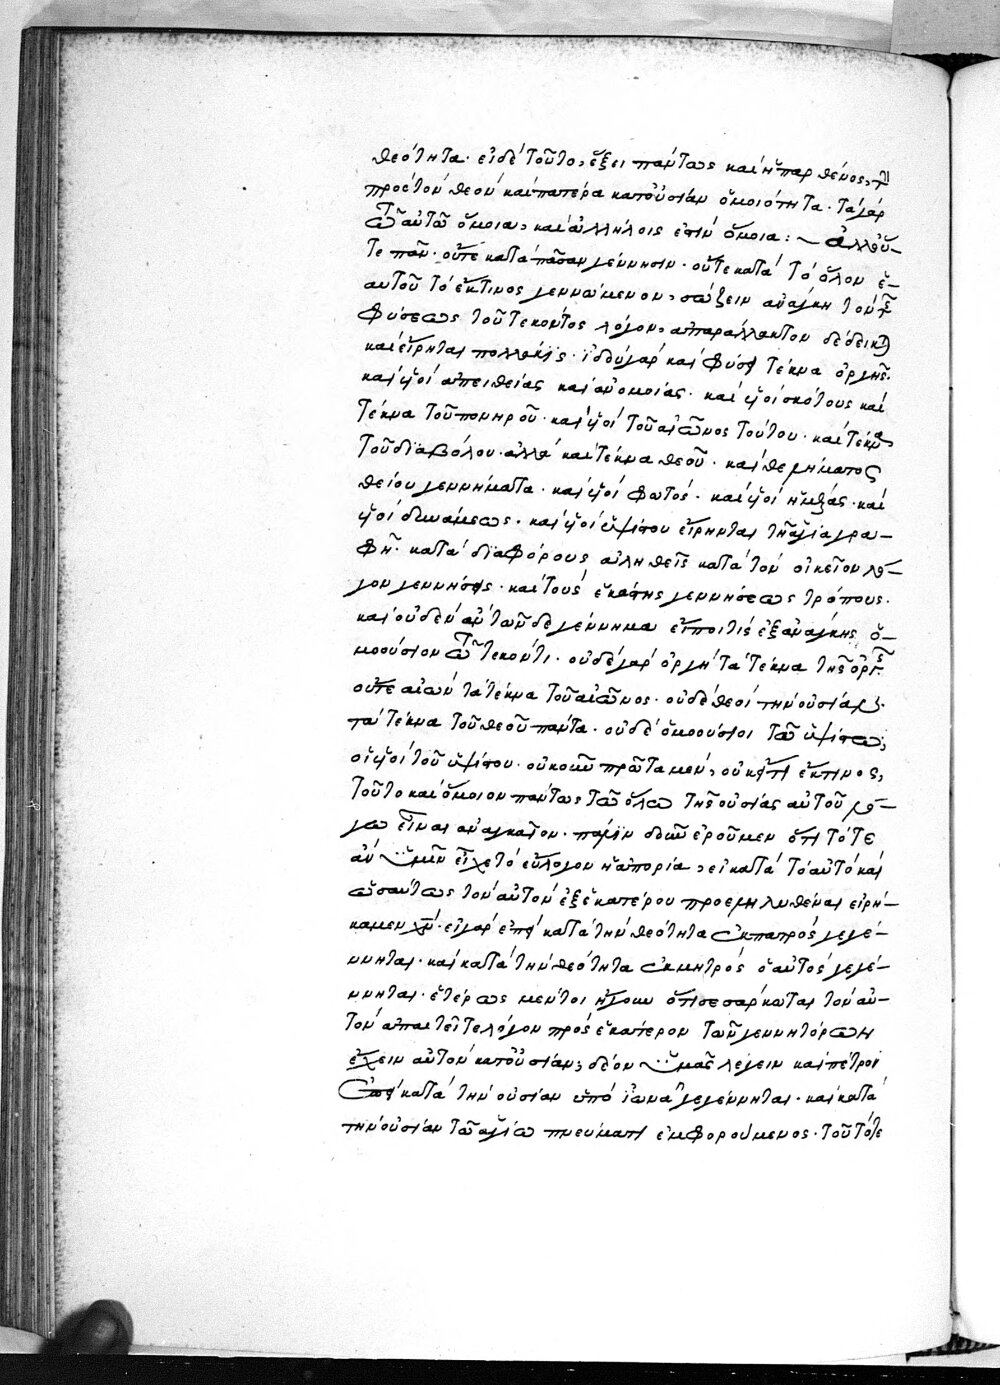 θεότητα· εἰ δὲ τοῦτο, ἕξει πάντως καὶ ἡ παρθένος, τὴν
πρὸς τὸν θεὸν καὶ πατέρα κατ' οὐσίαν ὁμοιότητα· τὰ γὰρ
τῶ αὐτῶ ὅμοια, καὶ ἀλλήλοις ἐστὶν ὅμοια: ~ ἀλλ' οὔ-
τε πᾶν· οὔτε κατὰ πᾶσαν γέννησιν· οὔτε κατὰ τὸ ὅλον ἑ-
αυτοῦ τὸ ἔκ τινος γεννώμενον, σώζειν ἀνάγκη τὸν τῆς
φύσεως τοῦ τεκόντος λόγον, ἀπαράλλακτον δέδεικται
καὶ εἴρηται πολλάκις· ἰδοὺ γὰρ καὶ φύσει τέκνα ὀργῆς·
καὶ υἱοὶ ἀπειθείας καὶ ἀνομίας· καὶ υἱοὶ σκότους καὶ
τέκνα τοῦ πονηροῦ· καὶ υἱοὶ τοῦ αἰῶνος τούτου· καὶ τέκνα
τοῦ διαβόλου· ἀλλὰ καὶ τέκνα θεοῦ· καὶ θελήματος
θείου γεννήματα· καὶ υἱοὶ φωτός· καὶ υἱοὶ ἡμέρας· καὶ
υἱοὶ δυνάμεως· καὶ υἱοὶ ὑψίστου εἴρηνται τῆ ἁγία γρα-
φῆ· κατὰ διαφόρους αὐληθεῖς κατὰ τὸν οἰκεῖον λό-
γον γεννήσεις· καὶ τοὺς ἑκάστης γεννήσεως τρόπους·
καὶ οὐδὲν αὐτῶν δὲ γέννημα εἴποι τις ἐξ ἀνάγκης ὁ-
μοούσιον τῶ τεκόντι· οὐδὲ γὰρ ὀργὴ τὰ τέκνα τῆς ὀργῆς·
οὔτε αἰὼν τὰ τέκνα τοῦ αἰῶνος· οὐδὲ θεοὶ τὴν οὐσίαν
τὰ τέκνα τοῦ θεοῦ πάντα· οὐδὲ ὁμοούσιοι τῶ ὑψίστω,
οἱ υἱοὶ τοῦ ὑψίστου· οὐκοῦν πρῶτα μέν, οὐκ εἴ τι ἔκ τινος,
τοῦτο καὶ ὅμοιον πάντως τῶ ὅλω τῆς οὐσίας αὐτοῦ λό-
γω εἶναι ἀναγκαῖον· πάλιν δ' οὖν ἐροῦμεν ὅτι τότε
ἂν ὑμῖν εἶχε τὸ εὔλογον ἡ ἀπορία, εἰ κατὰ τὸ αὐτὸ καὶ
ὡσαύτως τὸν αὐτὸν ἐξ ἑκατέρου προεληλυθέναι εἰρή-
καμεν χν· εἰ γὰρ ἐπεὶ κατὰ τὴν θεότητα ἐκ πατρὸς γεγέ-
ννηται· καὶ κατὰ τὴν θεότητα ἐκ μητρὸς ὁ αὐτὸς γεγέ-
ννηται· ἑτέρως μέντοι ἤγουν ὅτι σεσάρκωται τὸν αὐ-
τὸν ἀπαιτεῖτε λόγον πρὸς ἑκάτερον τῶν γεννητόρων
ἔχειν αὐτὸν κατ' οὐσίαν, δέον ὑμᾶς λέγειν καὶ πέτρον
ἐπεὶ κατὰ τὴν οὐσίαν ὑπὸ ἰωνᾶ γεγέννηται· καὶ κατὰ
τὴν οὐσίαν τῶ ἁγίω πνεύματι ἐμφορούμενος· τοῦτό τε